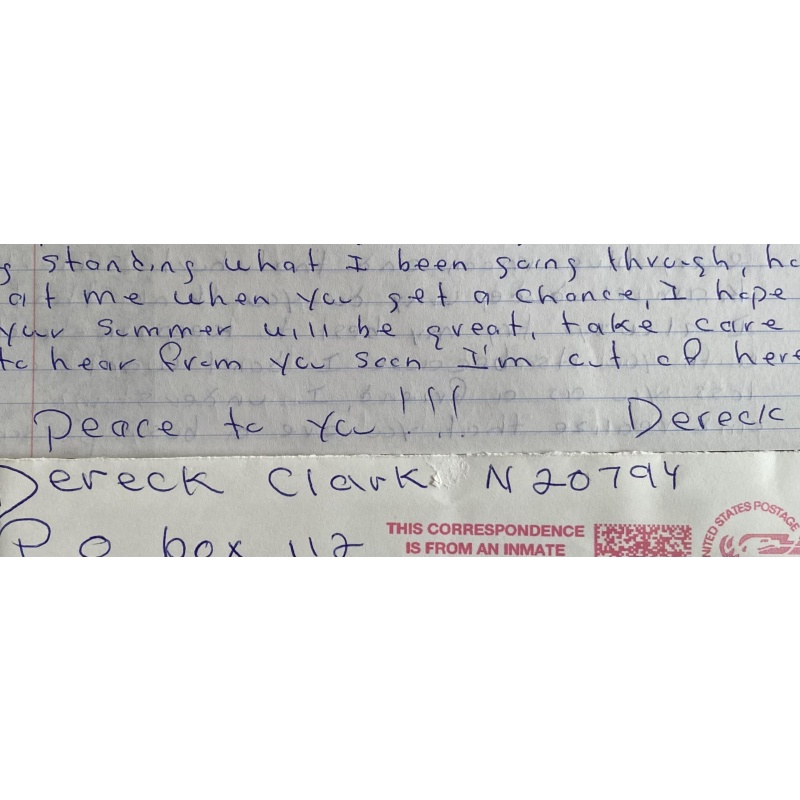 s standing what I been going through, ho
at me when you get a chance, I hope
your Summer will be great, take care
to hear from you soon I'm out of here
Peace to you !!!
Dereck
Dereck Clark N20794
P O box 112
THIS CORRESPONDENCE
IS FROM AN INMATE
UNITED STATES POSTAGE